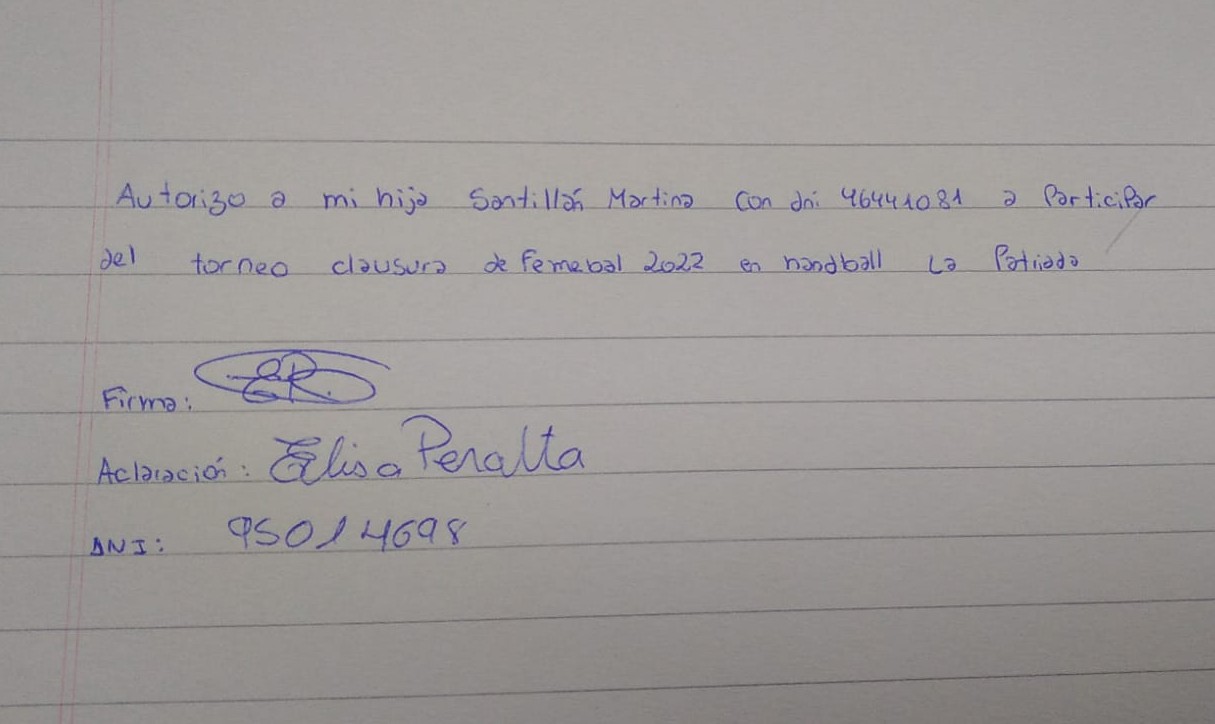 Autorizo a mi hija Santillán Martina con dni: 46441081 a Participar
del torneo clausura de Femebal 2022 en handball La Patriada
Firma: ER.
Aclaración: Elisa Peralta
DNI: 95014698